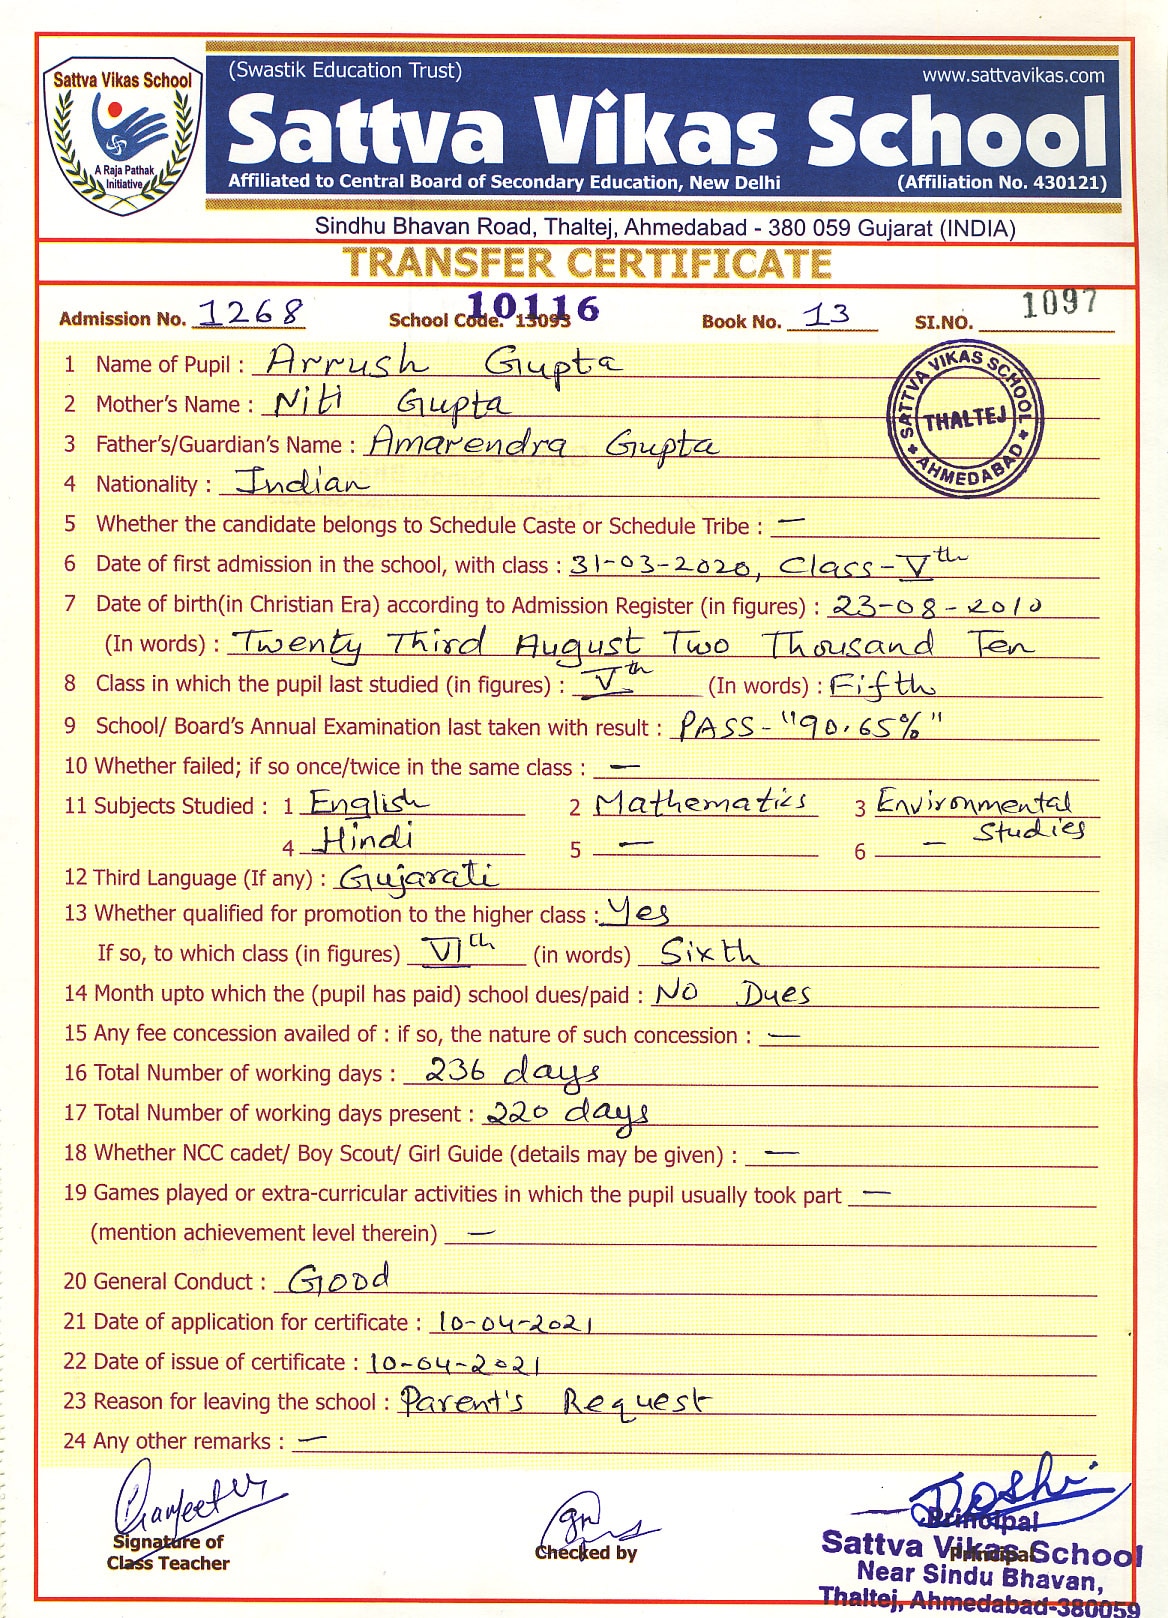 Sattva Vikas School
A Raja Pathak
Initiative
(Swastik Education Trust) www.sattvavikas.com
Sattva Vikas School
Affiliated to Central Board of Secondary Education, New Delhi (Affiliation No. 430121)
Sindhu Bhavan Road, Thaltej, Ahmedabad - 380 059 Gujarat (INDIA)
TRANSFER CERTIFICATE
10116 1097
Admission No. 1268 School Code. 13093 Book No. 13 SI.NO.
1 Name of Pupil : Arrush Gupta
2 Mother's Name : Niti Gupta
3 Father's/Guardian's Name : Amarendra Gupta
SATTVA VIKAS SCHOOL
THALTEJ
* AHMEDABAD *
4 Nationality : Indian
5 Whether the candidate belongs to Schedule Caste or Schedule Tribe : —
6 Date of first admission in the school, with class : 31-03-2020, Class-Vth
7 Date of birth(in Christian Era) according to Admission Register (in figures) : 23-08-2010
(In words) : Twenty Third August Two Thousand Ten
8 Class in which the pupil last studied (in figures) : Vth (In words) : Fifth
9 School/ Board's Annual Examination last taken with result : PASS-"90.65%"
10 Whether failed; if so once/twice in the same class : —
11 Subjects Studied : 1 English 2 Mathematics 3 Environmental
Studies
4 Hindi 5 — 6 —
12 Third Language (If any) : Gujarati
13 Whether qualified for promotion to the higher class : Yes
If so, to which class (in figures) VIth (in words) Sixth
14 Month upto which the (pupil has paid) school dues/paid : No Dues
15 Any fee concession availed of : if so, the nature of such concession : —
16 Total Number of working days : 236 days
17 Total Number of working days present : 220 days
18 Whether NCC cadet/ Boy Scout/ Girl Guide (details may be given) : —
19 Games played or extra-curricular activities in which the pupil usually took part —
(mention achievement level therein) —
20 General Conduct : Good
21 Date of application for certificate : 10-04-2021
22 Date of issue of certificate : 10-04-2021
23 Reason for leaving the school : Parent's Request
24 Any other remarks : —
Doshi
Signature of
Class Teacher
Checked by
Principal
Principal
Sattva Vikas School
Near Sindu Bhavan,
Thaltej, Ahmedabad-380059